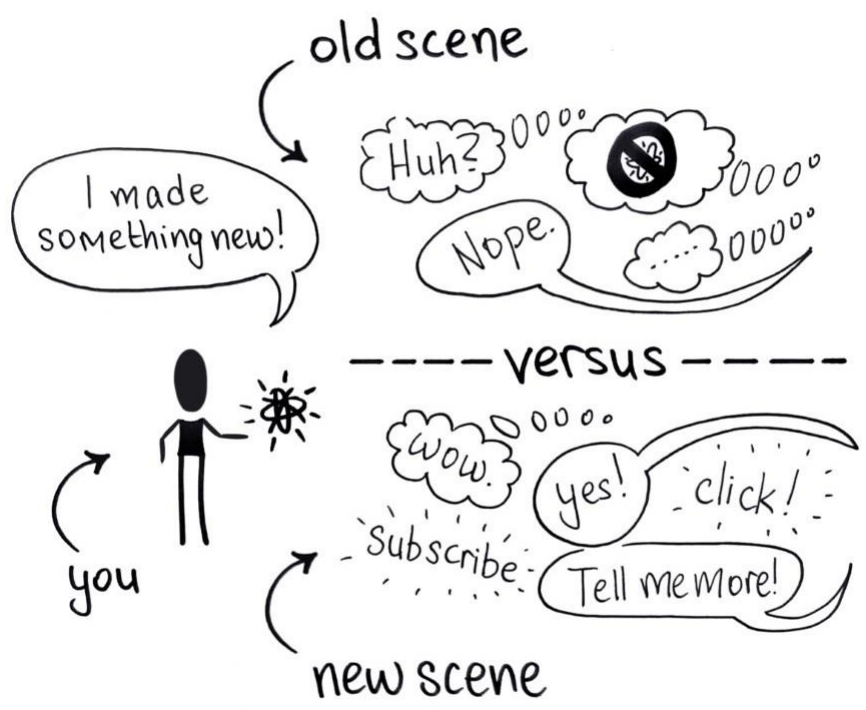 old scene
I made
something new!
Huh?
Nope.
.....
---- versus ----
wow.
yes!
click!
Subscribe
Tell me more!
you
new scene